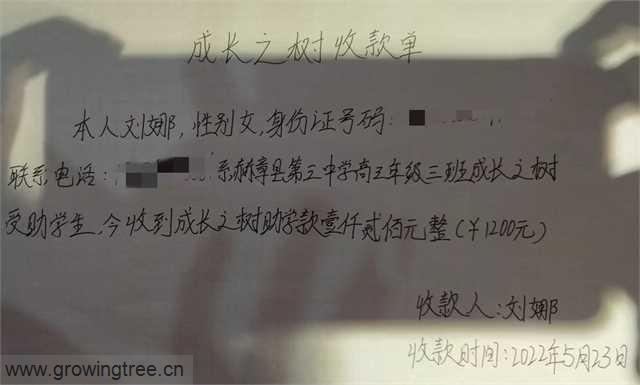 成长之树收款单
本人刘娜,性别女,身份证号码:
联系电话: 系赫章县第三中学高三年级三班成长之树
受助学生,今收到成长之树助学款壹仟贰佰元整(¥1200元)
收款人:刘娜
收款时间:2022年5月23日
www.growingtree.cn